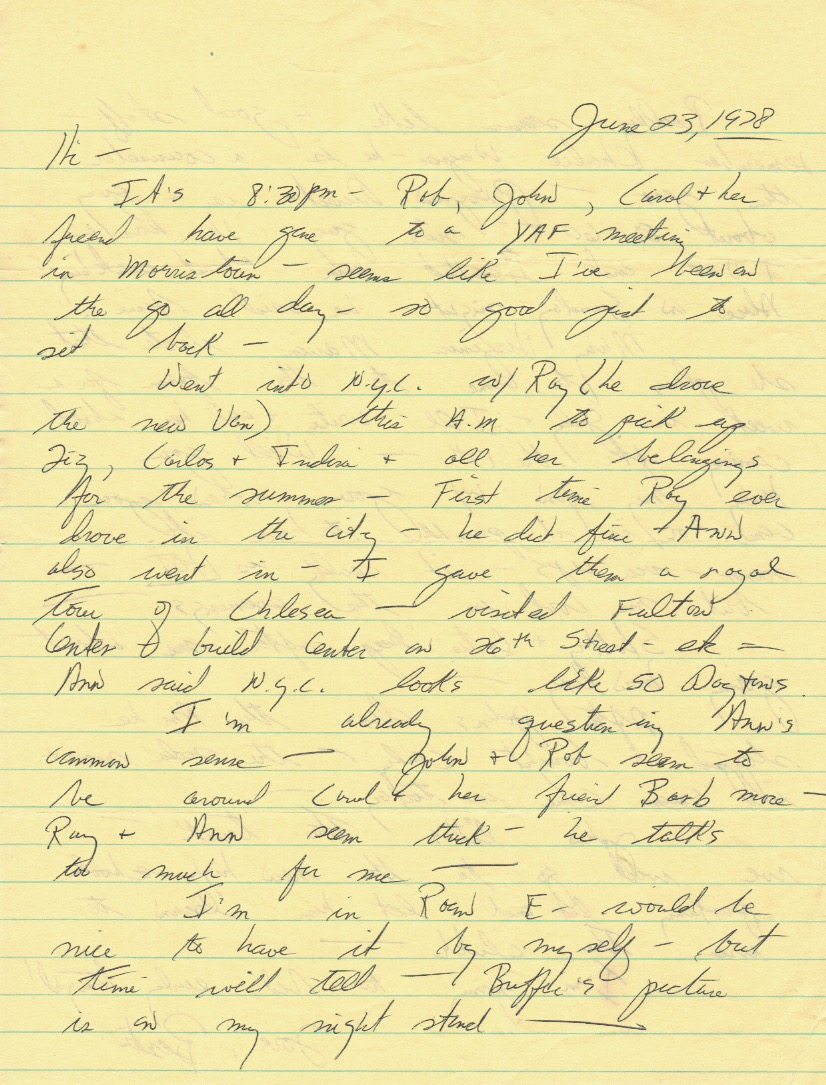 June 23, 1978
Hi —
It's 8:30 pm - Rob, John, Carol + her
friend have gone to a YAF meeting
in Morristown - seems like I've been on
the go all day - so good just to
sit back —
Went into N.Y.C. w/ Ray (he drove
the new Van) this A.M to pick up
Liz, Carlos + Indira + all her belongings
for the summer — First time Ray ever
drove in the city - he did fine + Ann
also went in - I gave them a royal
Tour of Chlesea — visited Fulton
Center build Center on 26th Street - etc —
Ann said N.Y.C. looks like 50 Daytons.
I'm already questioning Ann's
common sense — John + Rob seem to
be around Carol + her friend Barb more —
Ray + Ann seem thick - he talks
too much for me —
I'm in Room E - would be
nice to have it by myself - but
time will tell — Buffie's picture
is on my night stand —